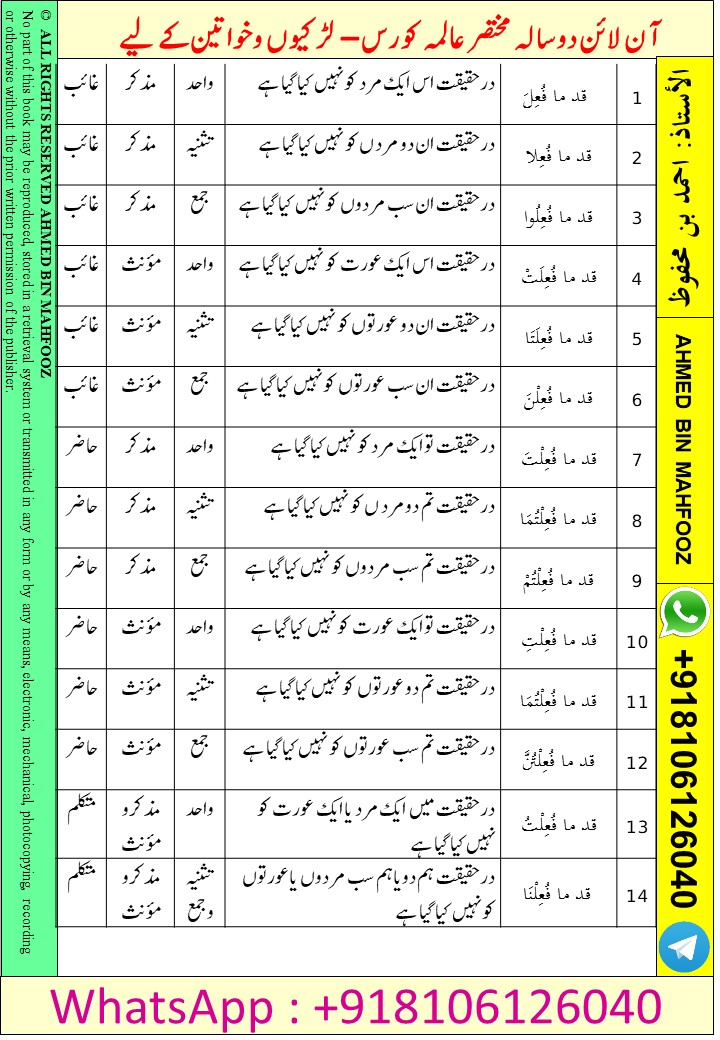 آن لائن دو سالہ مختصر عالمہ کورس – لڑکیوں و خواتین کے لیے
1 قد ما فُعِلَ در حقیقت اس ایک مرد کو نہیں کیا گیا ہے واحد مذکر غائب
2 قد ما فُعِلا در حقیقت ان دو مردں کو نہیں کیا گیا ہے تثنیہ مذکر غائب
3 قد ما فُعِلُوا در حقیقت ان سب مردوں کو نہیں کیا گیا ہے جمع مذکر غائب
4 قد ما فُعِلَتْ در حقیقت اس ایک عورت کو نہیں کیا گیا ہے واحد مؤنث غائب
5 قد ما فُعِلَتَا در حقیقت ان دو عورتوں کو نہیں کیا گیا ہے تثنیہ مؤنث غائب
6 قد ما فُعِلْنَ در حقیقت ان سب عورتوں کو نہیں کیا گیا ہے جمع مؤنث غائب
7 قد ما فُعِلْتَ در حقیقت تو ایک مرد کو نہیں کیا گیا ہے واحد مذکر حاضر
8 قد ما فُعِلْتُمَا در حقیقت تم دو مردں کو نہیں کیا گیا ہے تثنیہ مذکر حاضر
9 قد ما فُعِلْتُمْ در حقیقت تم سب مردوں کو نہیں کیا گیا ہے جمع مذکر حاضر
10 قد ما فُعِلْتِ در حقیقت تو ایک عورت کو نہیں کیا گیا ہے واحد مؤنث حاضر
11 قد ما فُعِلْتُمَا در حقیقت تم دو عورتوں کو نہیں کیا گیا ہے تثنیہ مؤنث حاضر
12 قد ما فُعِلْتُنَّ در حقیقت تم سب عورتوں کو نہیں کیا گیا ہے جمع مؤنث حاضر
13 قد ما فُعِلْتُ در حقیقت میں ایک مرد یا ایک عورت کو واحد مذکر و متکلم
نہیں کیا گیا ہے مؤنث
14 قد ما فُعِلْنَا در حقیقت ہم دو یا ہم سب مردوں یا عورتوں تثنیہ مذکر و متکلم
کو نہیں کیا گیا ہے وجمع مؤنث
الأستاذ: احمد بن محفوظ
AHMED BIN MAHFOOZ
+918106126040
© ALL RIGHTS RESERVED AHMED BIN MAHFOOZ
No part of this book may be reproduced, stored in a retrieval system or transmitted in any form or by any means, electronic, mechanical, photocopying, recording
or otherwise without the prior written permission of the publisher.
WhatsApp : +918106126040